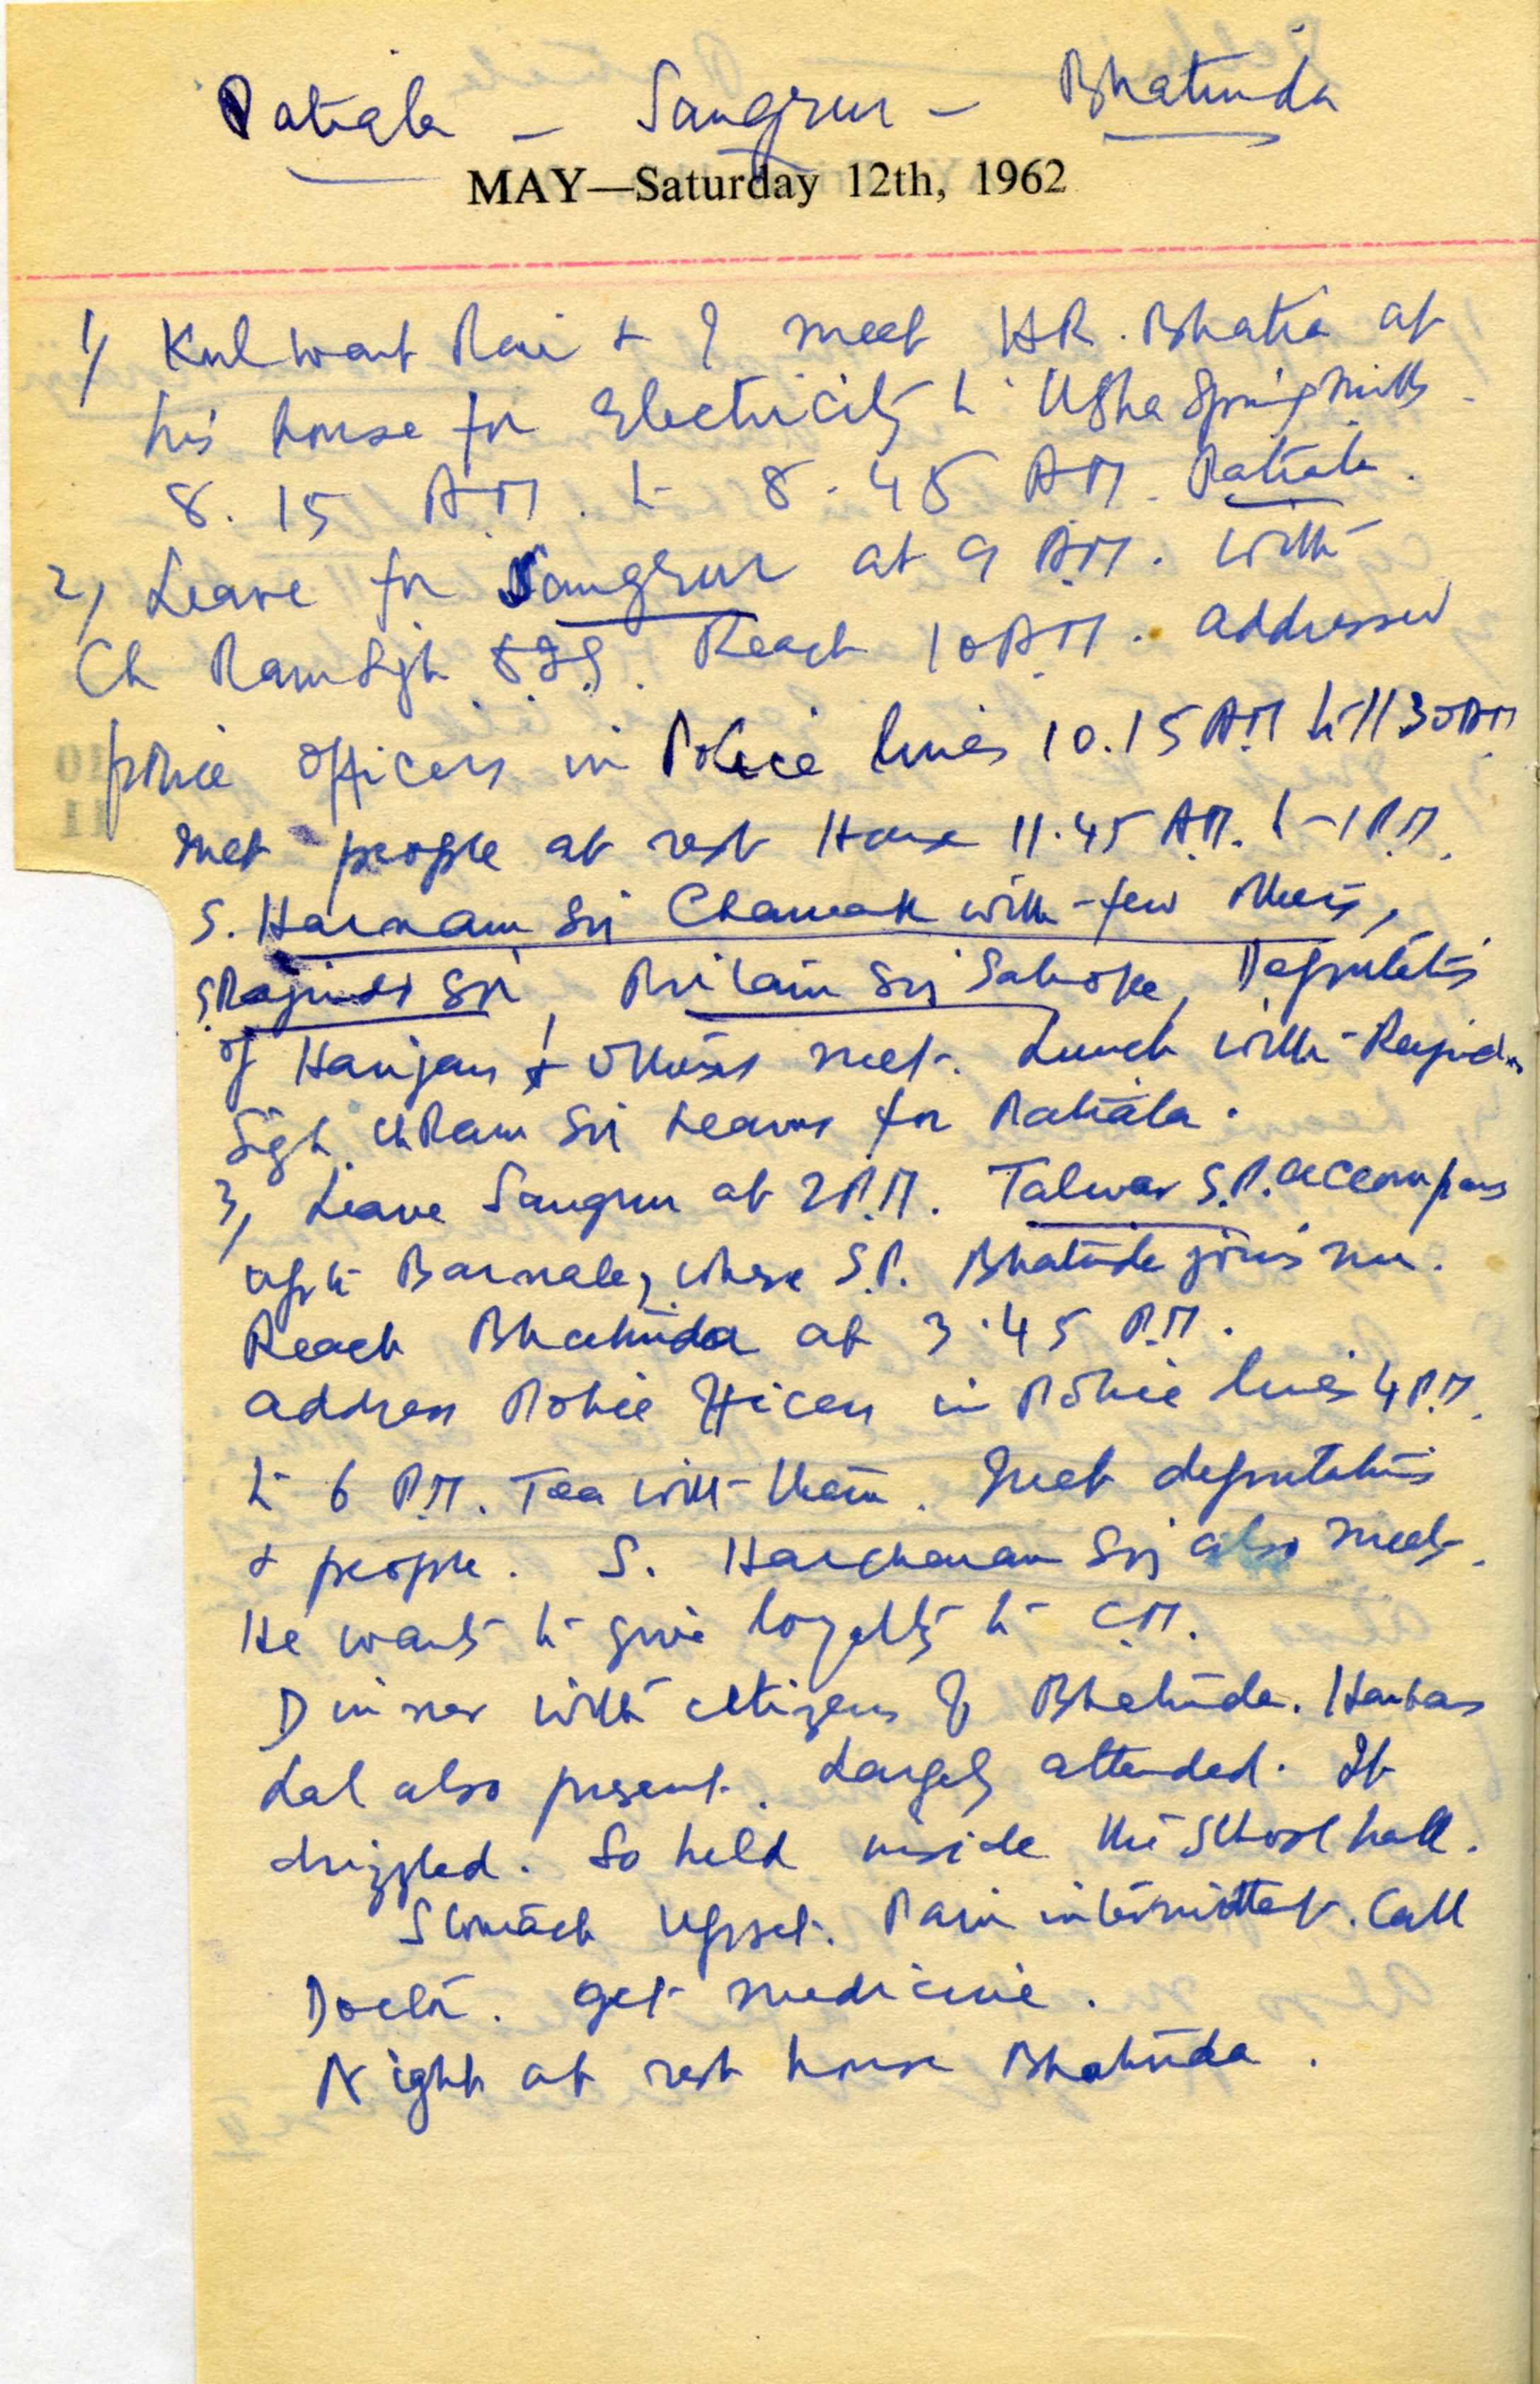 Patiala – Sangrur – Bhatinda
MAY—Saturday 12th, 1962
1) Kulwant Rai + I meet H.R. Bhatia at
his house for Electricity to Usha Sping Mills.
8.15 A.M. to 8.45 A.M. Patiala.
2) Leave for Sangrur at 9 A.M. with
Ch Ram Sigh Reach 10 A.M. addressed
police officers in Police lines 10.15 A.M to 11 30 AM
met people at rest House 11.45 A.M. to 1 P.M.
S. Harnam Sij with few others,
S Rajinder Sij, Pritam Sij Sahoke, Deputatis
of Harijans & others meet. Lunch with Rajinder
Sigh. Ch Ram Sij leaves for Patiala.
3, Leave Sangrur at 2 P.M. Talwar S.P. accompans
upto Barnala, where S.P. Bhatinda joins me.
Reach Bhatinda at 3.45 P.M.
address Police Officers in Police lines 4 P.M.
to 6 P.M. Tea with them. Meet deputatins
+ people. S. Harcharan Sij also meets.
He wants to give loyalty to C.M.
Dinner with citizens of Bhatinda. Harbans
Lal also present. Largely attended. It
drizzled. So held inside the School hall.
Stomach Upset. Pain intermittent. Call
Doctor. get medicine.
Night at rest house Bhatinda.